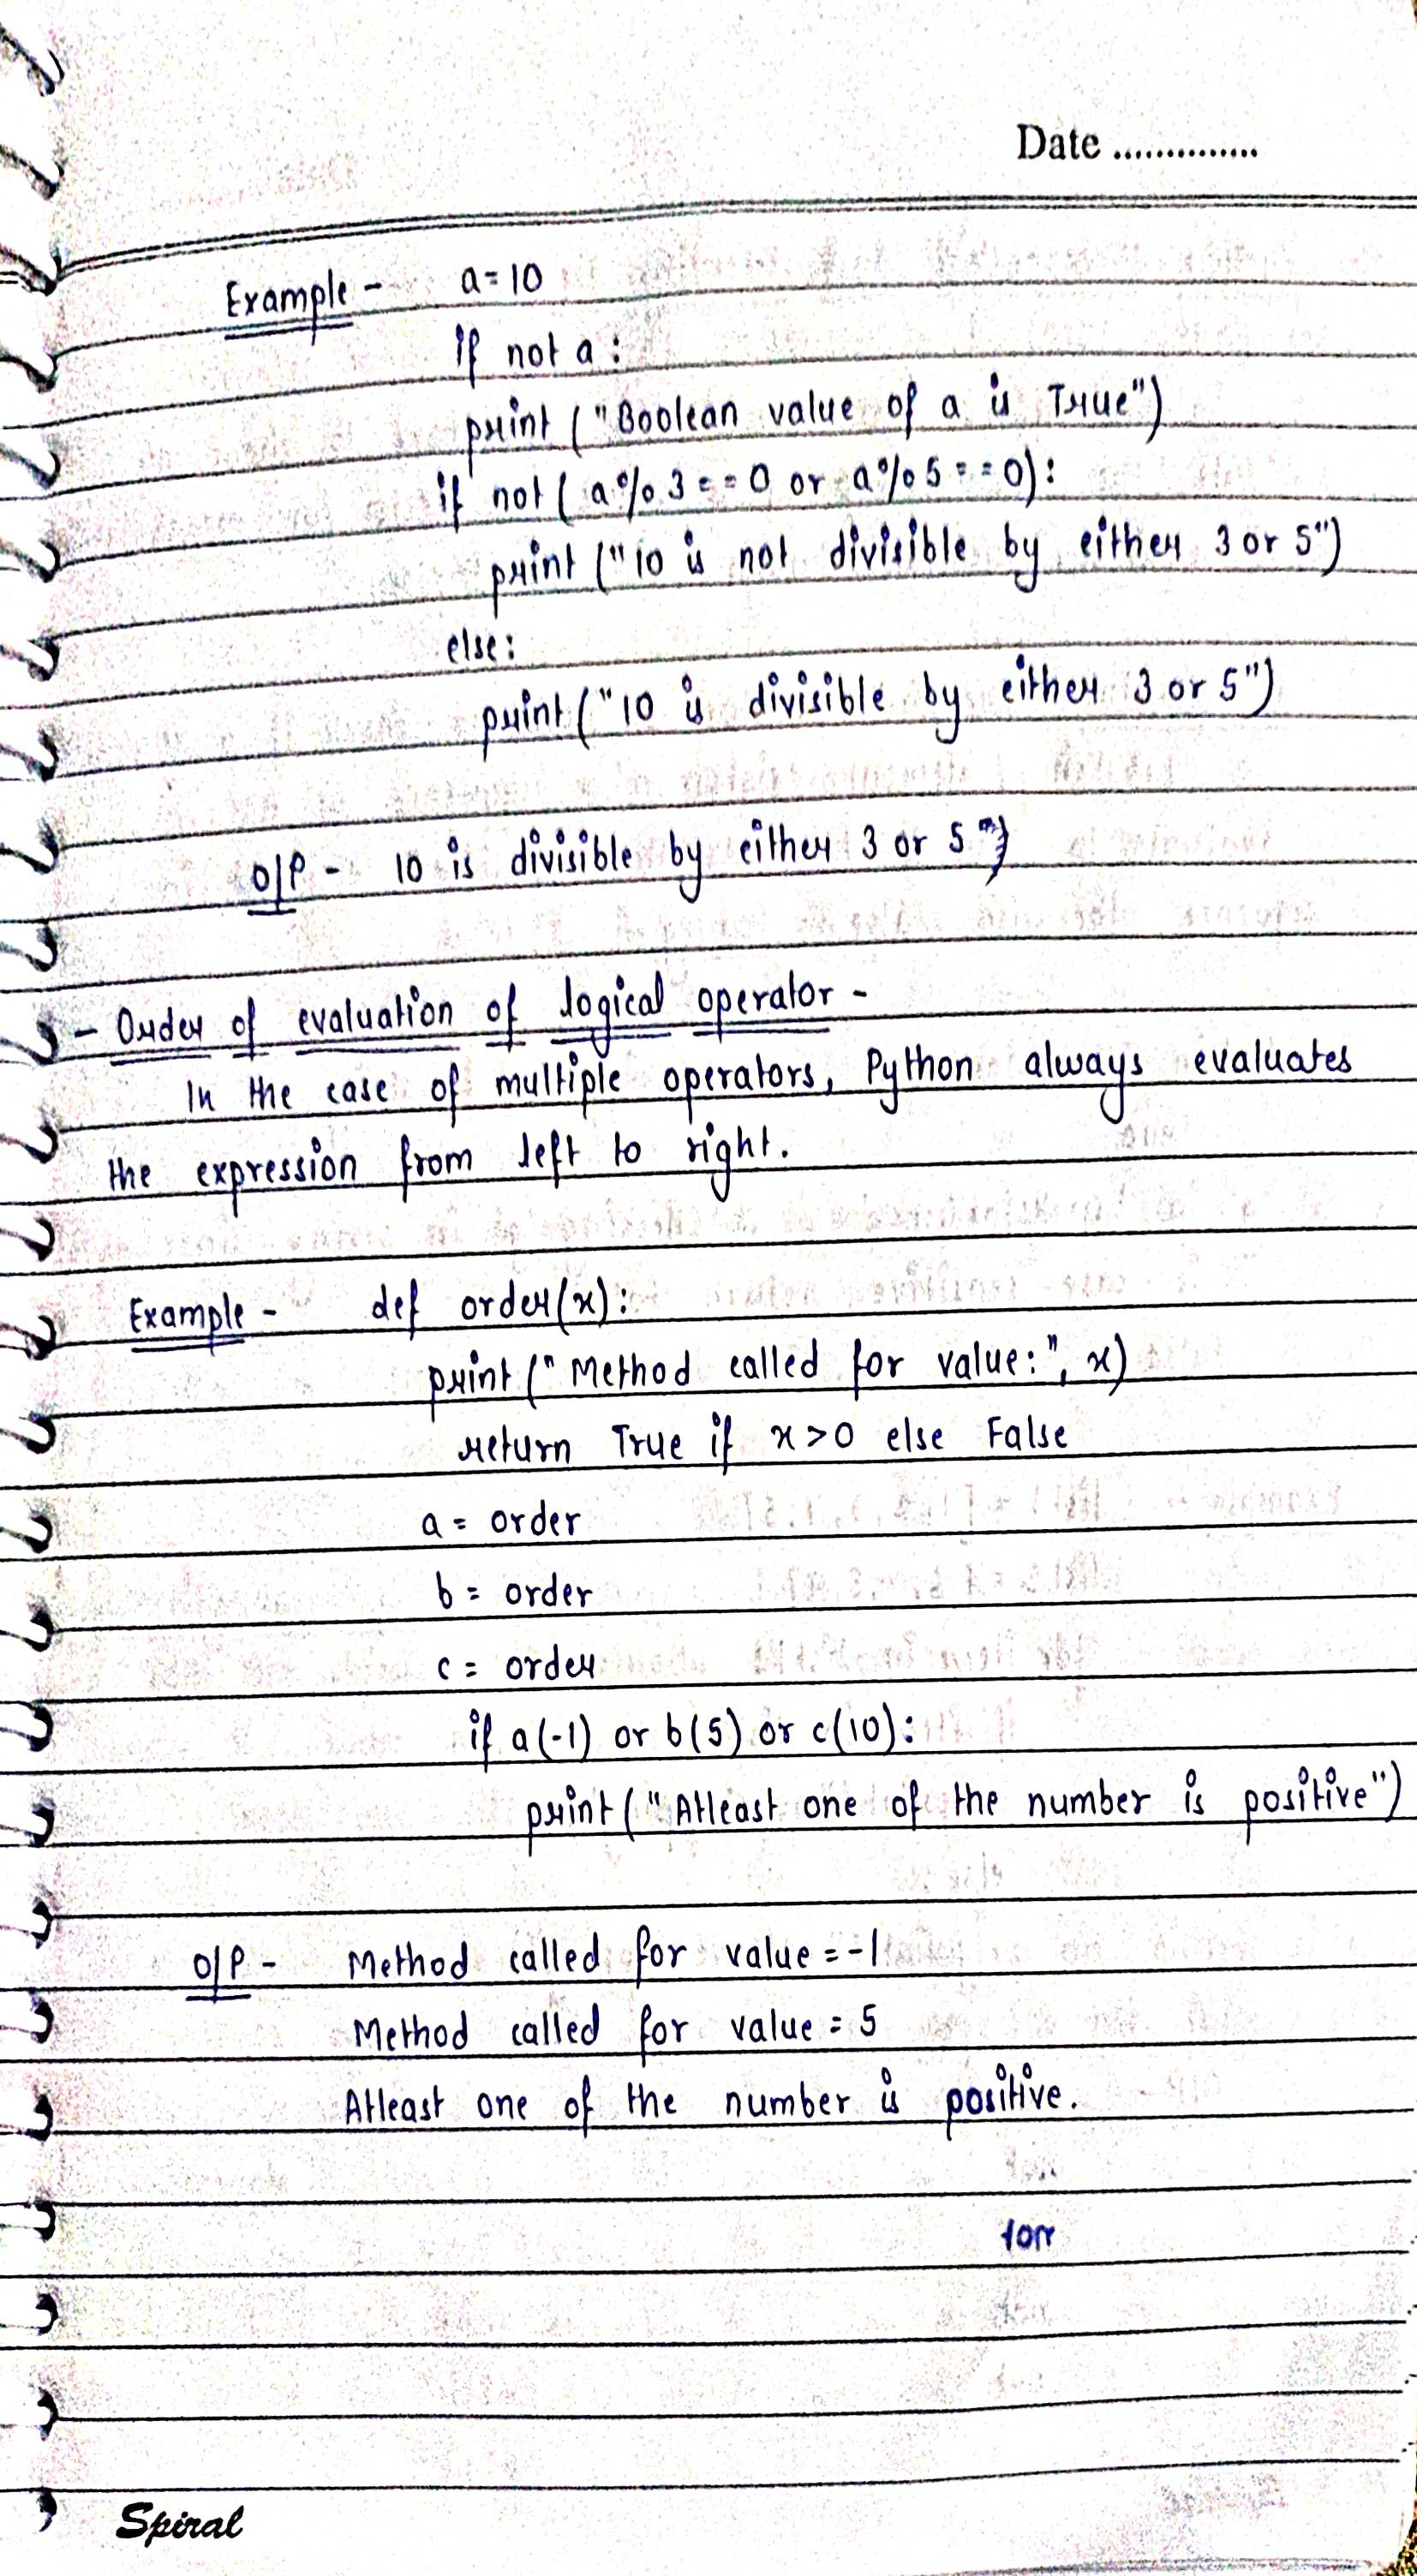 Date ..............
Example - a = 10
if not a :
print ("Boolean value of a is True")
if not ( a % 3 == 0 or a % 5 == 0) :
print ("10 is not divisible by either 3 or 5")
else :
print ("10 is divisible by either 3 or 5")
O/P - 10 is divisible by either 3 or 5
- Order of evaluation of logical operator -
In the case of multiple operators, Python always evaluates
the expression from left to right.
Example - def order(x) :
print (" Method called for value : ", x)
return True if x > 0 else False
a = order
b = order
c = order
if a(-1) or b(5) or c(10) :
print ("Atleast one of the number is positive")
O/P - Method called for value = -1
Method called for value = 5
Atleast one of the number is positive.
Spiral